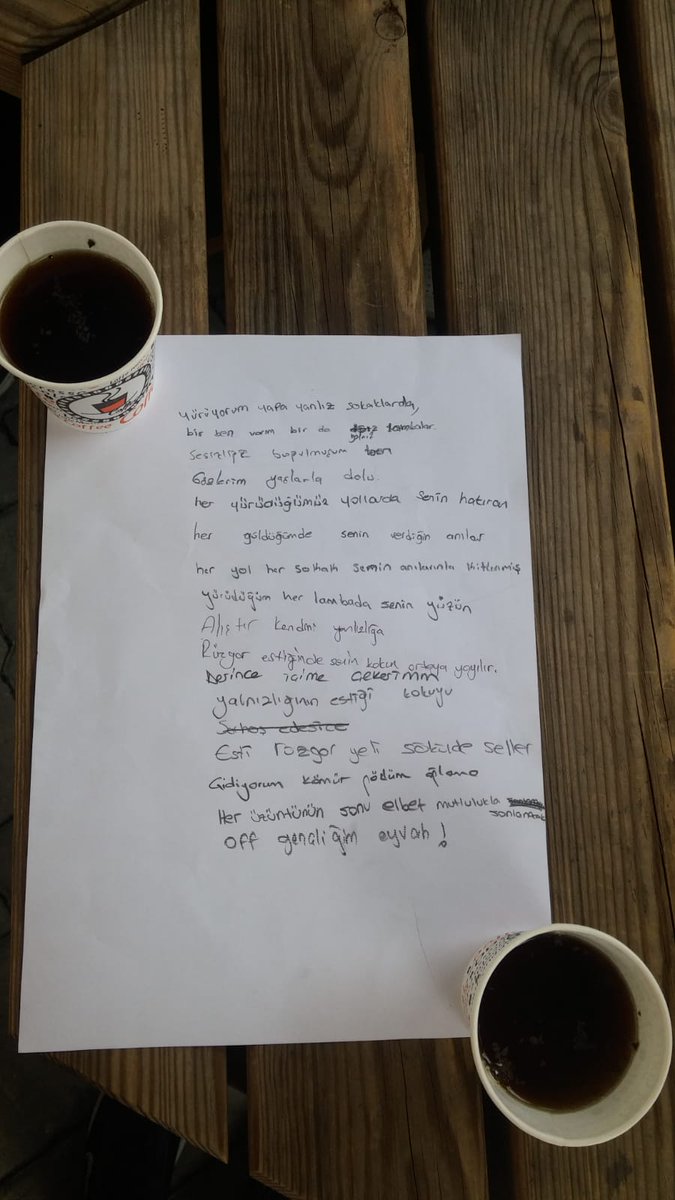 COFFEE
yürüyorum yapa yanlız sokaklarda,
bir ben varım bir de yalnız lambalar.
Sessizliğe buğulmuşum
Gözlerim yaşlarla dolu.
her yürüdüğümüz yollarda senin hatıran
her güldüğümde senin verdiğin anılar
her yol her sokak senin anılarınla kitlenmiş
yürüdüğüm her lambada senin yüzün
Alıştır kendini yanlızlığa
Rüzgar estiğinde senin kokun ortaya yayılır.
Derince içime çekerimm
yalnızlığının estiği kokuyu
Esti rüzgar yeli söküde seller
Gidiyorum kömür gözlüm ağlama
Her üzüntünün sonu elbet mutlulukla
sonlanacak
Off gençliğim eyvah!